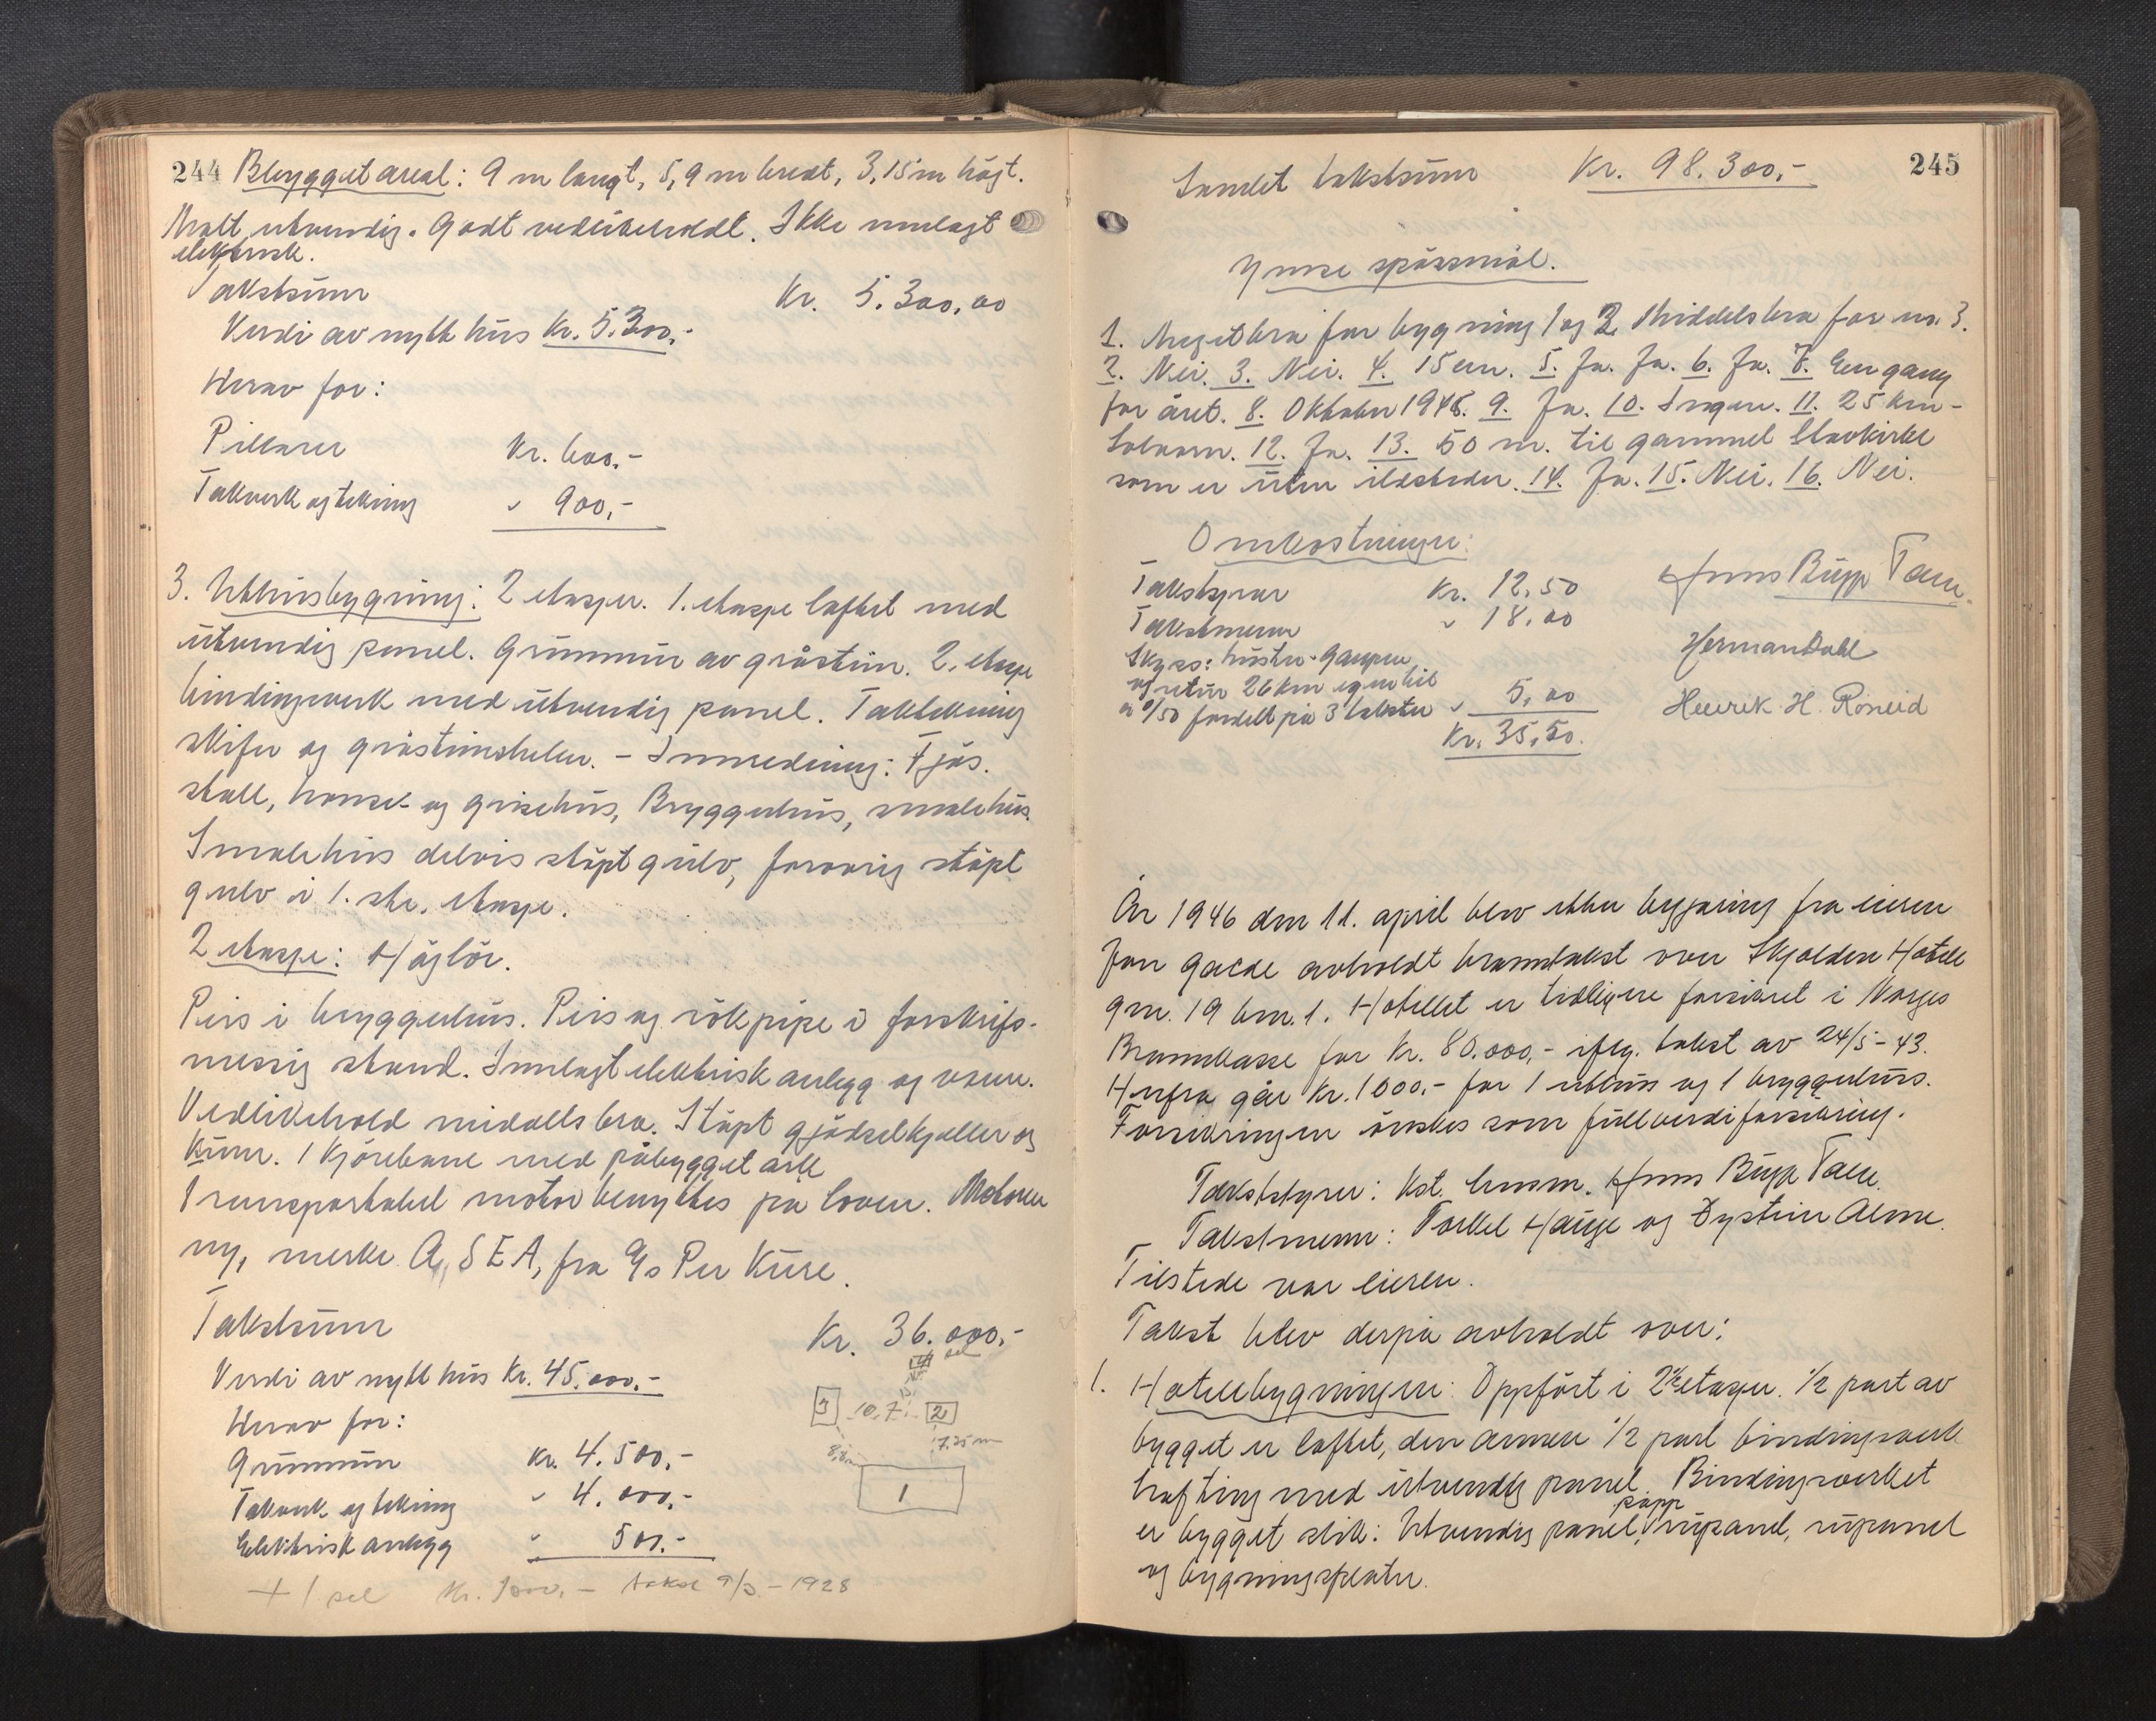 244 Bbygget areal: 9 m langt, 5,9 m bredt, 3,15 m högt.
Malt utvendig. Godt vedlikeholdt. Ikke innlagt
elektrisk.
Takstsum Kr. 5.300,00
Verdi av nytt hus Kr. 5.300,-
Herav for:
Pillarer Kr. 600,-
Takverk og tekning " 900,-
3. Uthusbygning: 2 etasjer. 1. etasje laftet med
utvendig panel. Grunnmur av gråstein. 2. etasje
bindingsverk med utvendig panel. Taktekning
skifer og gråsteinsheller. - Innredning: Fjös.
stall, hönse- og grisehus, Bryggerhus, smalehus.
Smalehus delvis stöpt gulv, forövrig stöpt
gulv i 1. ste. etasje.
2 etasje: Höylör.
Peis i bryggerhus. Peis og rökpipe i forskrifs-
messig stand. Innlagt elektrisk anlegg og vann.
Vedlikehold middells bra. Stöpt gjödselkjeller og
Kum. 1 Kjörebane med påbygget ark
Transportabel motor benyttes på loven. Motoren
ny, merke A,SEA, fra A/s Per Kure.
Takstsum Kr. 36.000,-
Verdi av nytt hus Kr. 45.000,-
Herav for:
Grunnmur Kr. 4.500,-
Takverk og tekning " 4.000,-
Elektrisk anlegg " 500,-
+ 1 sel Kr. 1000,- takst 9/3-1928
4 sel
3 10,7 2
7,25 m
1
245
Samlet takstsum Kr. 98.300,-
Ymse spörsmål.
1. Meget bra for bygning 1 og 2. Middels bra for nr. 3.
2. Nei. 3. Nei. 4. 15 cm. 5. Ja. Ja. 6. Ja. 7. En gang
for året. 8. Oktober 1945. 9. Ja. 10. Ingen. 11. 25 km -
Solvorn. 12. Ja. 13. 50 m. til gammel Stavkirke
som er uten ildsteder. 14. Ja. 15. Nei. 16. Nei.
Omkostninger:
Takstyrar Kr. 12,50
Takstmenn " 18,00
Skyss: Luster-Gaupne
og retur 26 km egen bil
a 0/50 fordelt på 3 takster " 5,00
Kr. 35,50.
Hans Bugge Tane.
Herman Dahl
Henrik H. Röneid
År 1946 den 11. april blev etter begjæring fra eieren
Jon Galde avholdt branntakst over Skjolden Hotell
gnr. 19 bnr. 1. Hotellet er tidligere forsikret i Norges
Brannkasse for Kr. 80.000,- iflg. takst av 24/5-43.
Herfra går Kr. 1000,- for 1 uthus og 1 bryggerhus.
Forsikringen önskes som fullverdiforsikring.
Takststyrer: Kst. lensm. Hans Bugge Tane.
Takstmenn: Torkel Hauge og Öystein Alme.
Tilstede var eieren.
Takst blev derpå avholdt over:
1. Hotellbygningen: Oppfört i 2½ etasjer. 1/2 part av
bygget er laftet, den annen 1/2 part bindingsverk
trafting med utvendig panel. Bindingsverket
papp
er bygget slik: Utvendig panel, rupanel, rupanel
og bygningsplater.